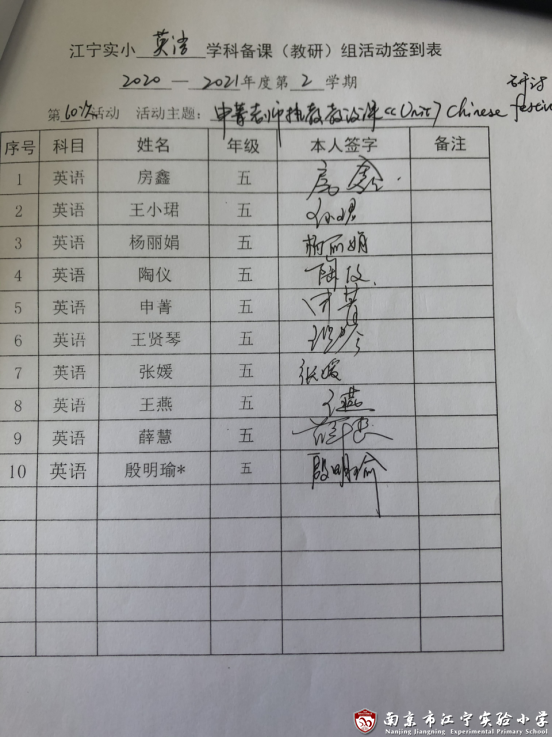 江宁实小 英语 学科备课（教研）组活动签到表
2020 — 2021年度第 2 学期
研讨
第 10次 活动 活动主题：申菁老师执教教设课《Unit7 Chinese festiv
序号 科目 姓名 年级 本人签字 备注
1 英语 房鑫 五 房鑫
2 英语 王小珺 五
3 英语 杨丽娟 五 杨丽娟
4 英语 陶仪 五 陶仪
5 英语 申菁 五 申菁
6 英语 王贤琴 五
7 英语 张媛 五 张媛
8 英语 王燕 五 王燕
9 英语 薛慧 五 薛慧
10 英语 殷明瑜* 五 殷明瑜
南京市江宁实验小学
Nanjing Jiangning Experimental Primary School